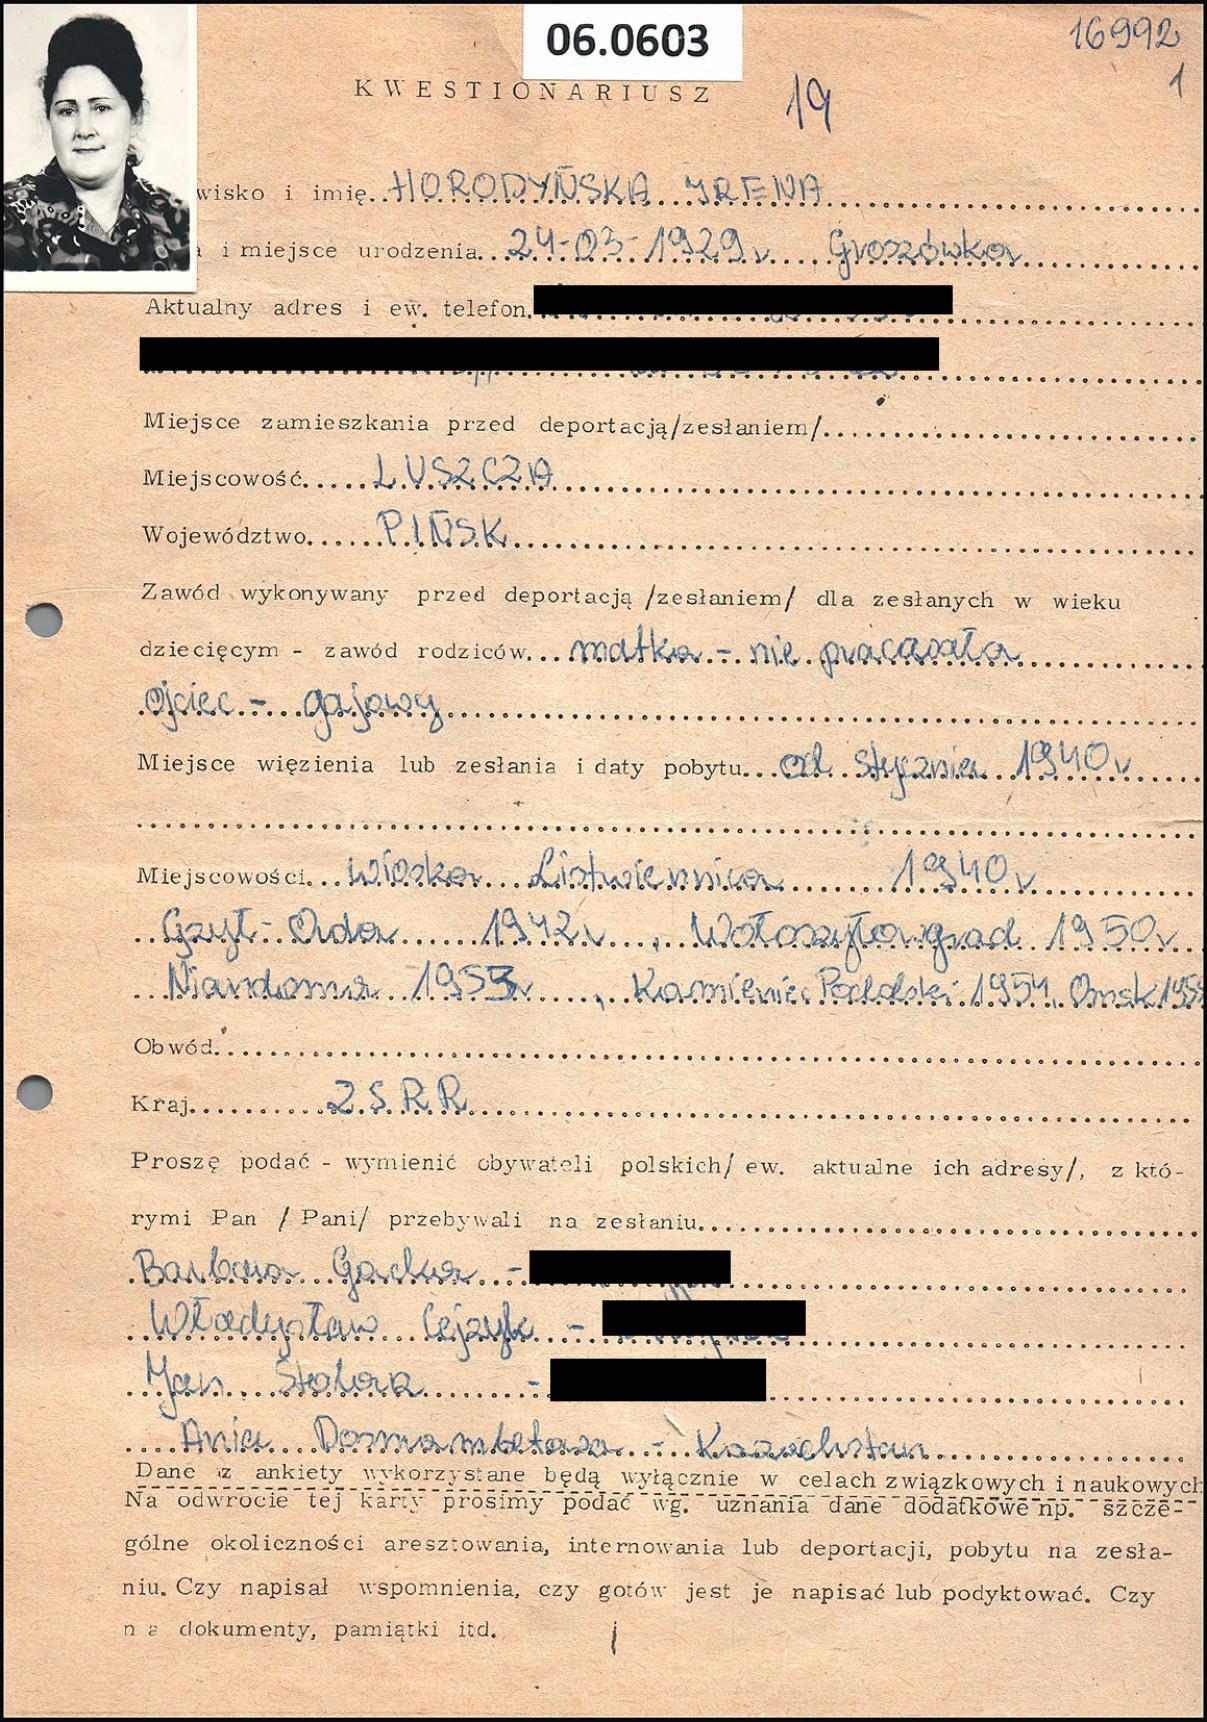 06.0603
16992
1
KWESTIONARIUSZ 19
wisko i imię.. HORODYŃSKA IRENA
i miejsce urodzenia.. 24-03-1929r. Groszówka
Aktualny adres i ew. telefon.
Miejsce zamieszkania przed deportacją/zesłaniem/
Miejscowość..... LUSZCZA
Województwo...... PIŃSK
Zawód wykonywany przed deportacją /zesłaniem/ dla zesłanych w wieku
dziecięcym - zawód rodziców... matka - nie pracowała
ojciec - gajowy
Miejsce więzienia lub zesłania i daty pobytu... od stycznia 1940r
Miejscowości... Wioska Listwiennica 1940r
Gzył-Orda 1942r, Wołoszyłowgrad 1950r
Niandoma 1953r, Kamieniec Podolski 1954, Omsk
Obwód
Kraj ZSRR
Proszę podać - wymienić obywateli polskich/ ew. aktualne ich adresy/, z któ-
rymi Pan / Pani/ przebywali na zesłaniu
Barbara -
Władysław Cejzyk -
Jan -
Ania - Kazachstan
Dane z ankiety wykorzystane będą wyłącznie w celach związkowych i naukowych
Na odwrocie tej karty prosimy podać wg. uznania dane dodatkowe np. szcze-
gólne okoliczności aresztowania, internowania lub deportacji, pobytu na zesła-
niu. Czy napisał wspomnienia, czy gotów jest je napisać lub podyktować. Czy
ma dokumenty, pamiątki itd.